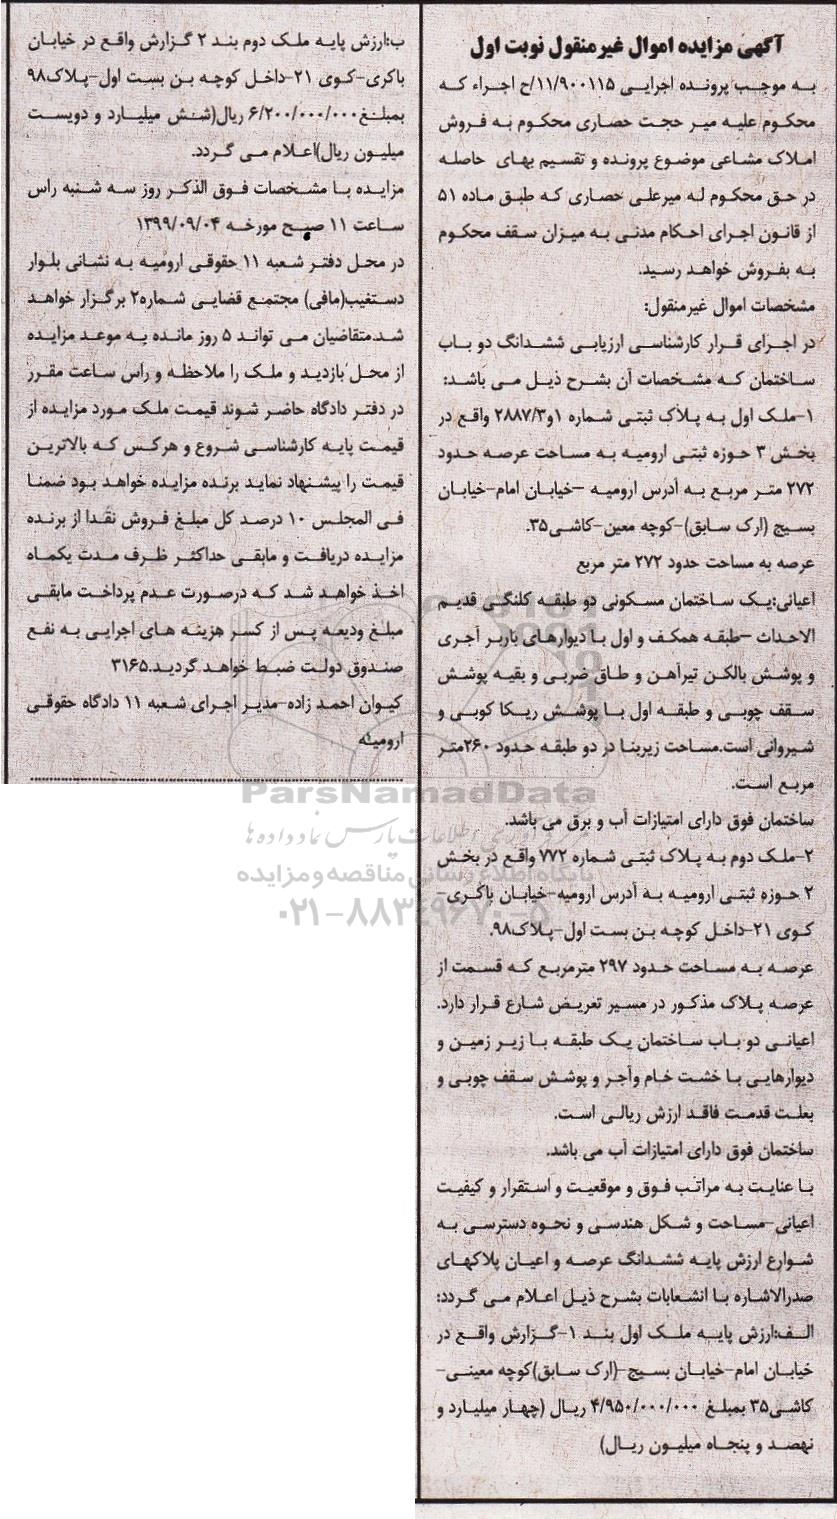 آگهی مزایده اموال غیرمنقول نوبت اول
به موجب پرونده اجرایی ۱۱/۹۰۰۱۱۵/ح اجراء که
محکوم علیه میر حجت حصاری محکوم به فروش
املاک مشاعی موضوع پرونده و تقسیم بهای حاصله
در حق محکوم له میرعلی حصاری که طبق ماده ۵۱
از قانون اجرای احکام مدنی به میزان سقف محکوم
به بفروش خواهد رسید.
مشخصات اموال غیرمنقول:
در اجرای قرار کارشناسی ارزیابی ششدانگ دو باب
ساختمان که مشخصات آن بشرح ذیل می باشد:
۱-ملک اول به پلاک ثبتی شماره ۱و۲۸۸۷/۳ واقع در
بخش ۳ حوزه ثبتی ارومیه به مساحت عرصه حدود
۲۷۲ متر مربع به آدرس ارومیه –خیابان امام-خیابان
بسیج (ارک سابق)-کوچه معین-کاشی۳۵.
عرصه به مساحت حدود ۲۷۲ متر مربع
اعیانی:یک ساختمان مسکونی دو طبقه کلنگی قدیم
الاحداث –طبقه همکف و اول با دیوارهای باربر آجری
و پوشش بالکن تیرآهن و طاق ضربی و بقیه پوشش
سقف چوبی و طبقه اول با پوشش ریکا کوبی و
شیروانی است.مساحت زیربنا در دو طبقه حدود ۲۶۰متر
مربع است.
ساختمان فوق دارای امتیازات آب و برق می باشد.
۲-ملک دوم به پلاک ثبتی شماره ۷۷۲ واقع در بخش
۲ حوزه ثبتی ارومیه به آدرس ارومیه-خیابان باکری-
کوی ۲۱-داخل کوچه بن بست اول-پلاک۹۸.
عرصه به مساحت حدود ۲۹۷ مترمربع که قسمت از
عرصه پلاک مذکور در مسیر تعریض شارع قرار دارد.
اعیانی دو باب ساختمان یک طبقه با زیر زمین و
دیوارهایی با خشت خام وآجر و پوشش سقف چوبی و
بعلت قدمت فاقد ارزش ریالی است.
ساختمان فوق دارای امتیازات آب می باشد.
با عنایت به مراتب فوق و موقعیت و استقرار و کیفیت
اعیانی-مساحت و شکل هندسی و نحوه دسترسی به
شوارع ارزش پایه ششدانگ عرصه و اعیان پلاکهای
صدرالاشاره با انشعابات بشرح ذیل اعلام می گردد:
الف:ارزش پایه ملک اول بند ۱-گزارش واقع در
خیابان امام-خیابان بسیج-(ارک سابق)کوچه معینی-
کاشی۳۵ بمبلغ ۴/۹۵۰/۰۰۰/۰۰۰ ریال (چهار میلیارد و
نهصد و پنجاه میلیون ریال)
ب:ارزش پایه ملک دوم بند ۲ گزارش واقع در خیابان
باکری-کوی ۲۱-داخل کوچه بن بست اول-پلاک۹۸
بمبلغ۶/۲۰۰/۰۰۰/۰۰۰ ریال(شش میلیارد و دویست
میلیون ریال)اعلام می گردد.
مزایده با مشخصات فوق الذکر روز سه شنبه راس
ساعت ۱۱ صبح مورخه ۱۳۹۹/۰۹/۰۴
در محل دفتر شعبه ۱۱ حقوقی ارومیه به نشانی بلوار
دستغیب(مافی) مجتمع قضایی شماره۲ برگزار خواهد
شد.متقاضیان می تواند ۵ روز مانده به موعد مزایده
از محل بازدید و ملک را ملاحظه و راس ساعت مقرر
در دفتر دادگاه حاضر شوند قیمت ملک مورد مزایده از
قیمت پایه کارشناسی شروع و هرکس که بالاترین
قیمت را پیشنهاد نماید برنده مزایده خواهد بود ضمنا
فی المجلس ۱۰ درصد کل مبلغ فروش نقدا از برنده
مزایده دریافت و مابقی حداکثر ظرف مدت یکماه
اخذ خواهد شد که درصورت عدم پرداخت مابقی
مبلغ ودیعه پس از کسر هزینه های اجرایی به نفع
صندوق دولت ضبط خواهد گردید.۳۱۶۵
کیوان احمد زاده-مدیر اجرای شعبه ۱۱ دادگاه حقوقی
ارومیه
ParsNamadData
پایگاه اطلاع رسانی مناقصه و مزایده
۰۲۱-۸۸۳۴۹۶۷۰-۵